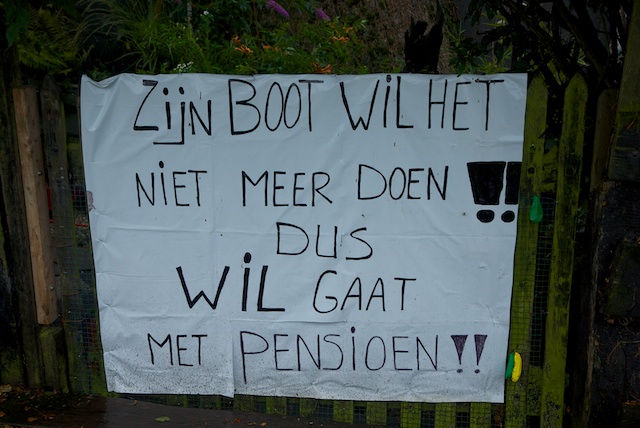 ZijN BOOT WiL HET
NiET MEER DOEN !!
DUS
WiL GAAT
MET PENSiOEN!!